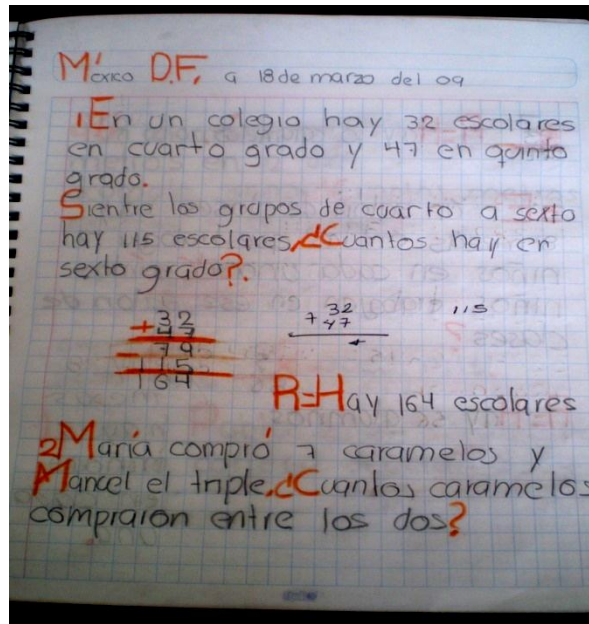 México D.F, a 18 de marzo del 09
1 En un colegio hay 32 escolares
en cuarto grado y 47 en quinto
grado.
Si entre los grupos de cuarto a sexto
hay 115 escolares, ¿Cuantos hay en
sexto grado?.
+32
47
79
115
164
+ 32
47
115
R=Hay 164 escolares
2 María compró 7 caramelos y
Mancel el triple, ¿Cuantos caramelos
compraron entre los dos?